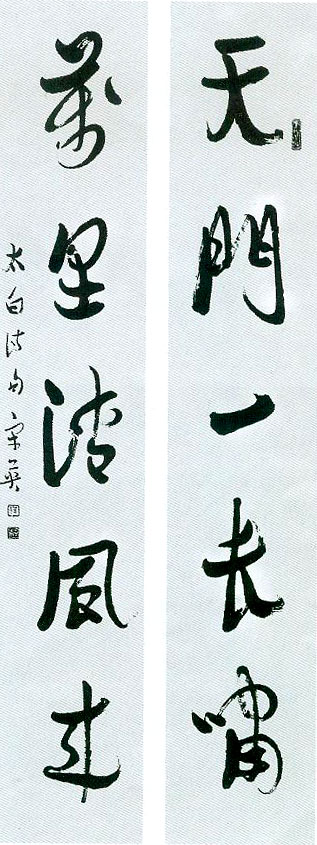 天門一長嘯
萬里清風來
太白詩句宋英